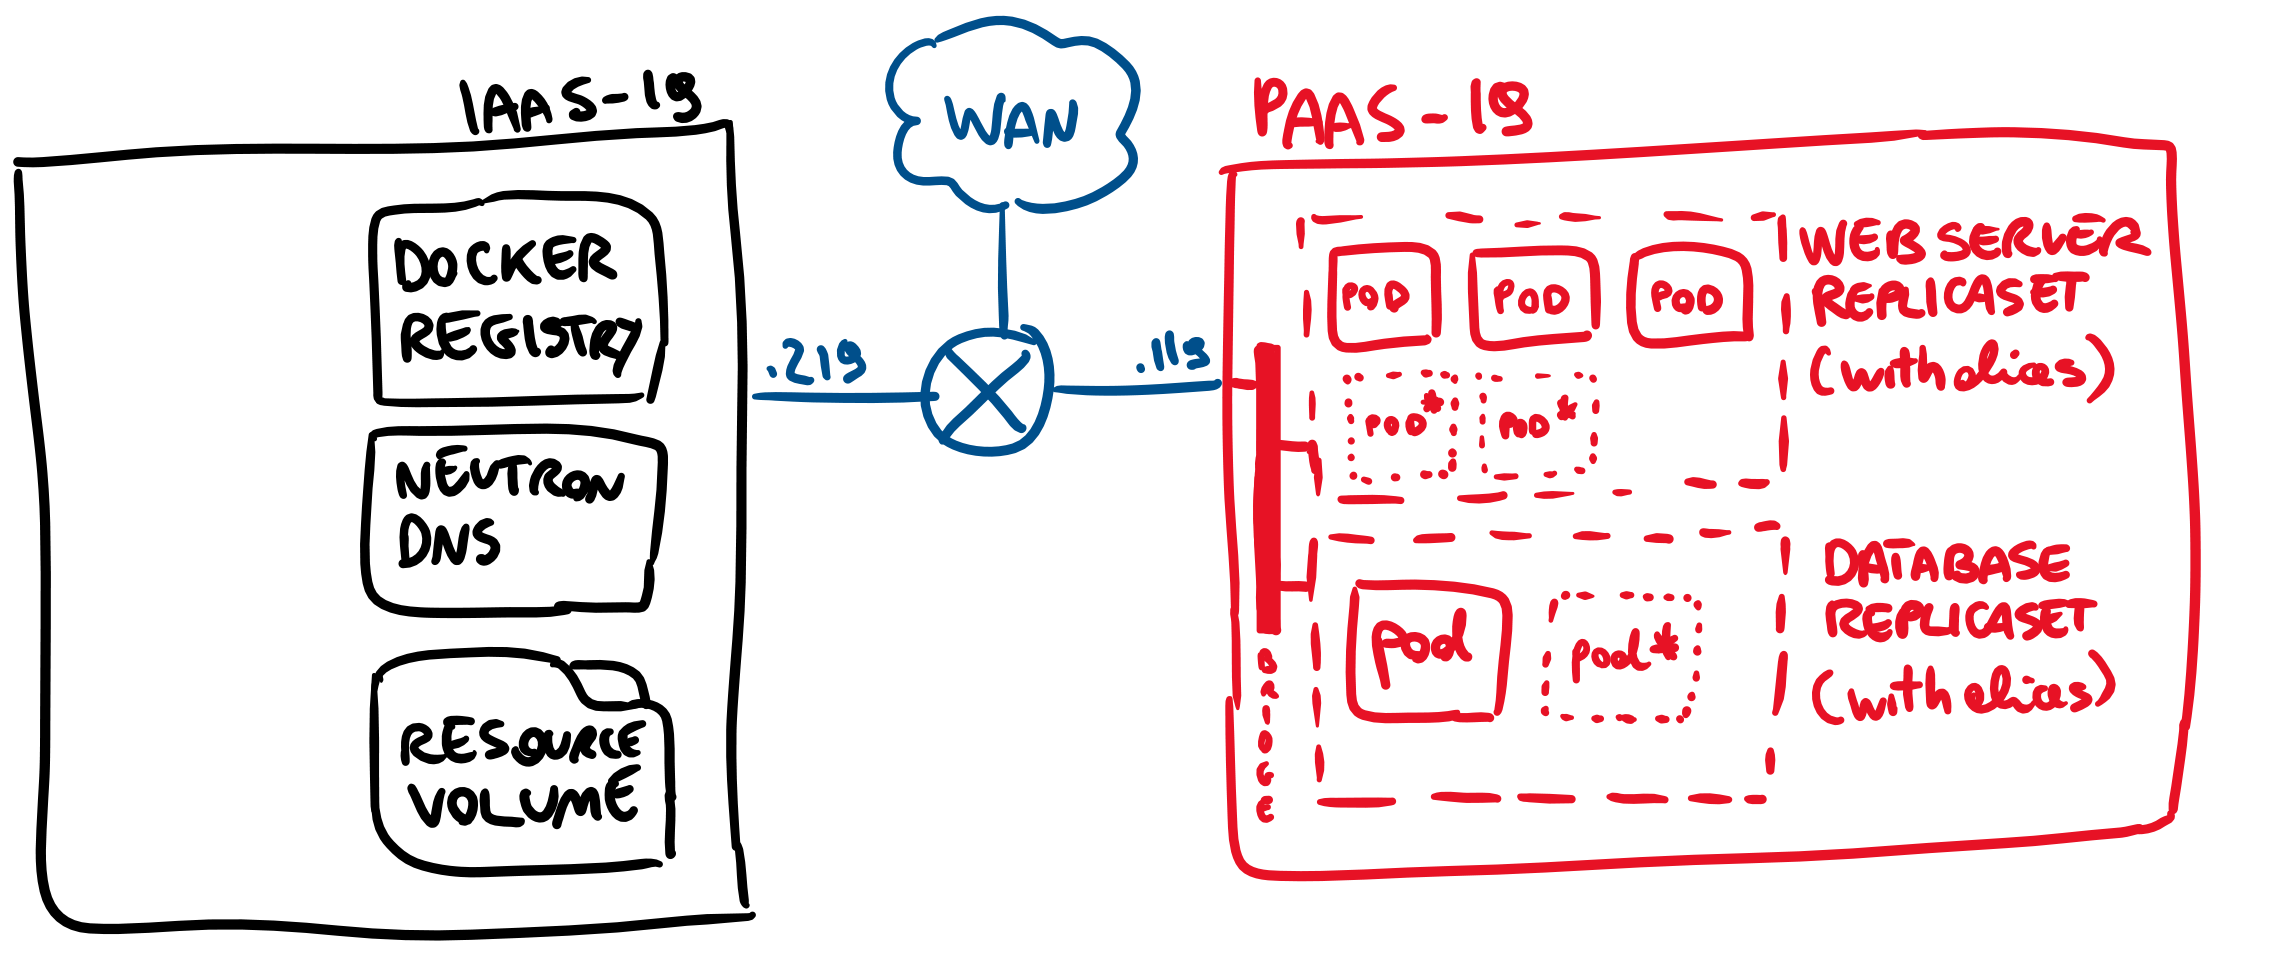 IAAS-19
DOCKER
REGISTRY
NEUTRON
DNS
RESOURCE
VOLUME
WAN
.219
.119
PAAS-19
POD POD POD
POD* POD*
WEB SERVER
REPLICASET
(with
pod pod*
DATABASE
REPLICASET
(with
BRIDGE